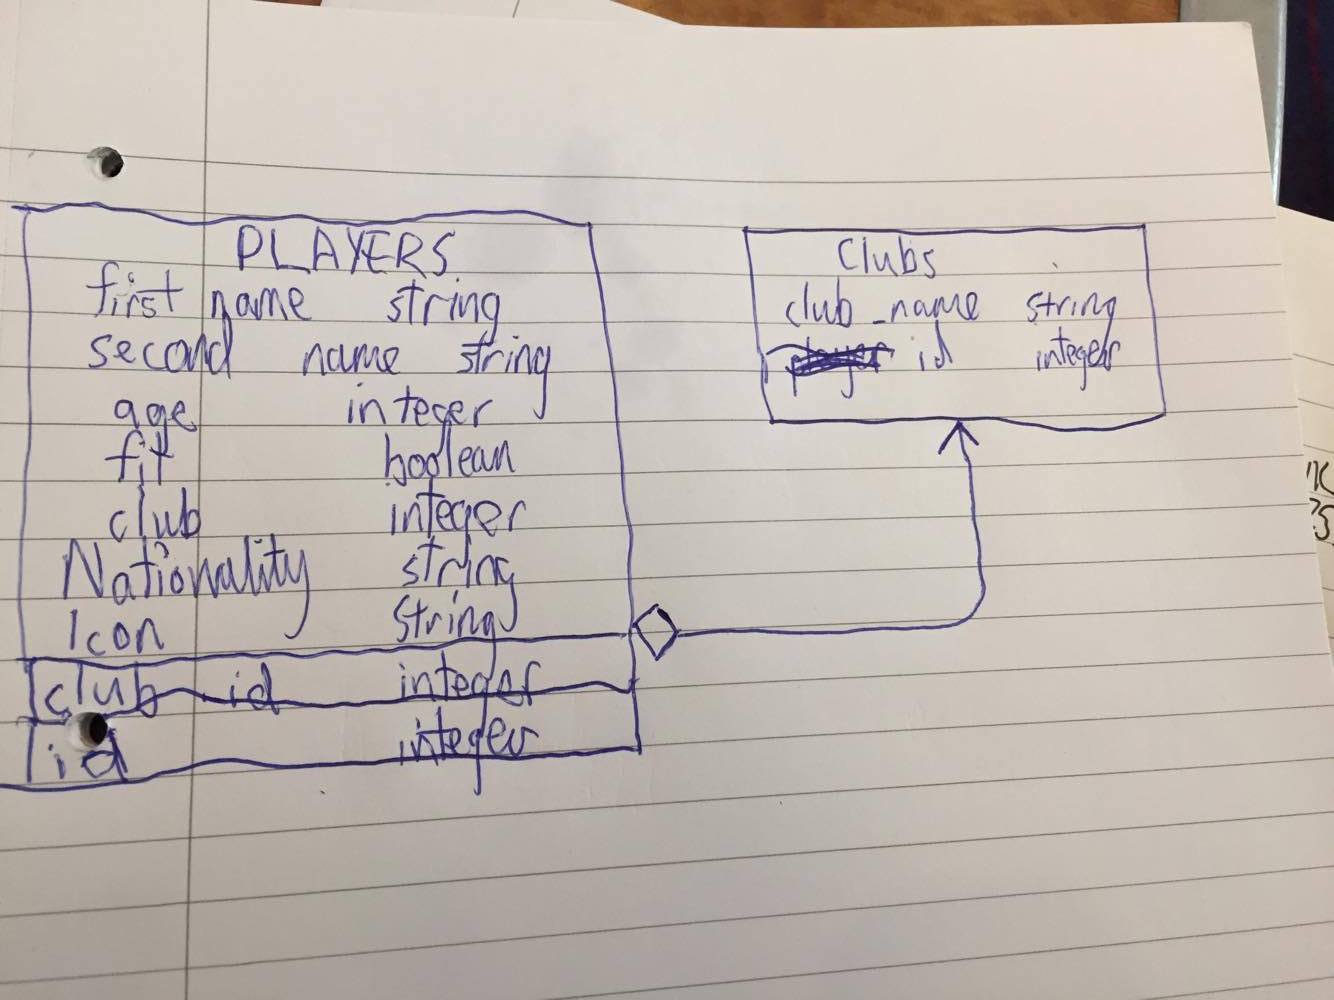 PLAYERS
first name string
second name string
age integer
fit boolean
club integer
Nationality string
Icon string
club id integer
id integer
Clubs
club_name string
id integer